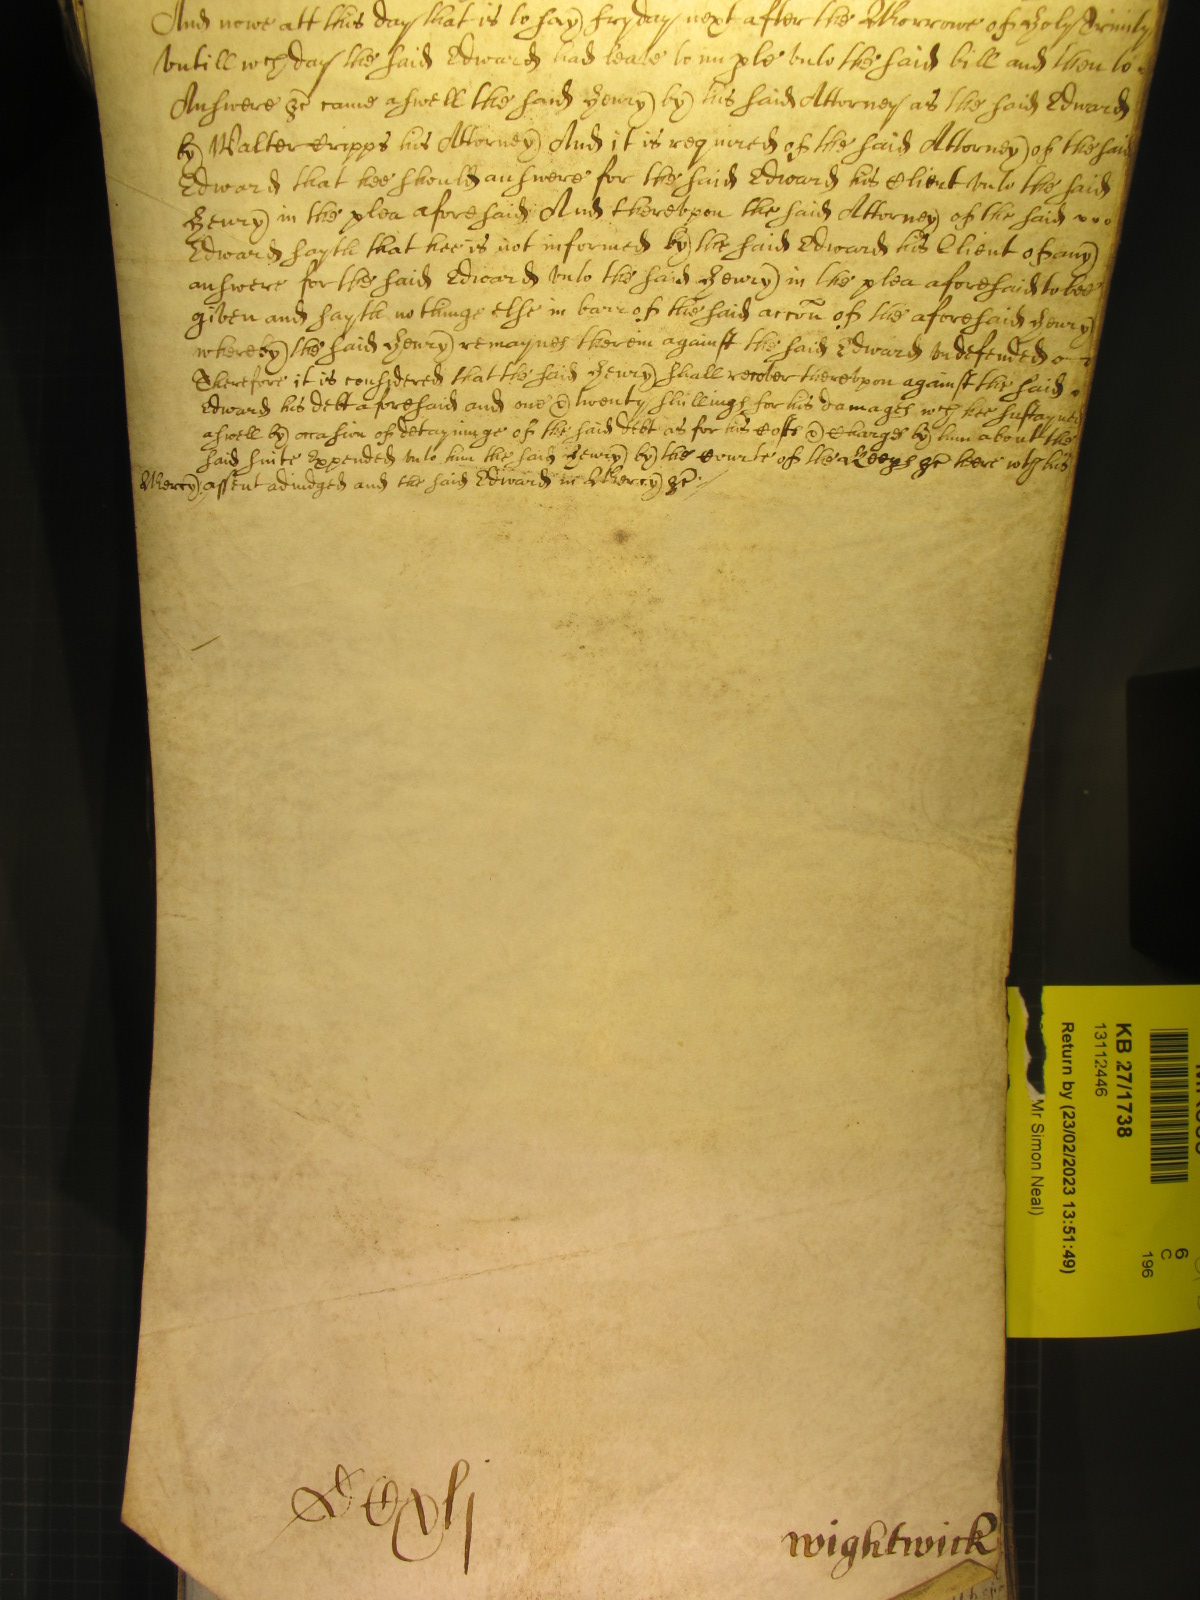 And nowe att this day that is to say fryday next after the Morrowe of Holy Trinity
vntill wch day the said Edward had leave to imple vnto the said bill and then to
Answere &c came aswell the said Henry by his said Attorney as the said Edward
by Walter Cripps his Attorney And it is required of the said Attorney of the said
Edward that hee should answere for the said Edward his Client vnto the said
Henry in the plea aforesaid And therevpon the said Attorney of the said
Edward sayth that hee is not informed by the said Edward his Client of any
answere for the said Edward vnto the said Henry in the plea aforesaid to bee
given and sayth nothinge else in barr of the said accōn of the aforesaid Henry
whereby the said Henry remaynes therein against the said Edward vndefended
Therefore it is considered that the said Henry shall recover therevpon against the said
Edward his debt aforesaid and one & twenty shillings for his damages wch hee sustayned
aswell by occasion of detayninge of the said debt as for his costs & charges by him about the
said suite expended vnto him the said Henry by the Courte of the &c here wth his
Mercy assent adiudged and the said Edward in Mercy &c
wightwick
KB 27/1738
13112446
Return by (23/02/2023 13:51:49)
Mr Simon Neal)
6
C
196